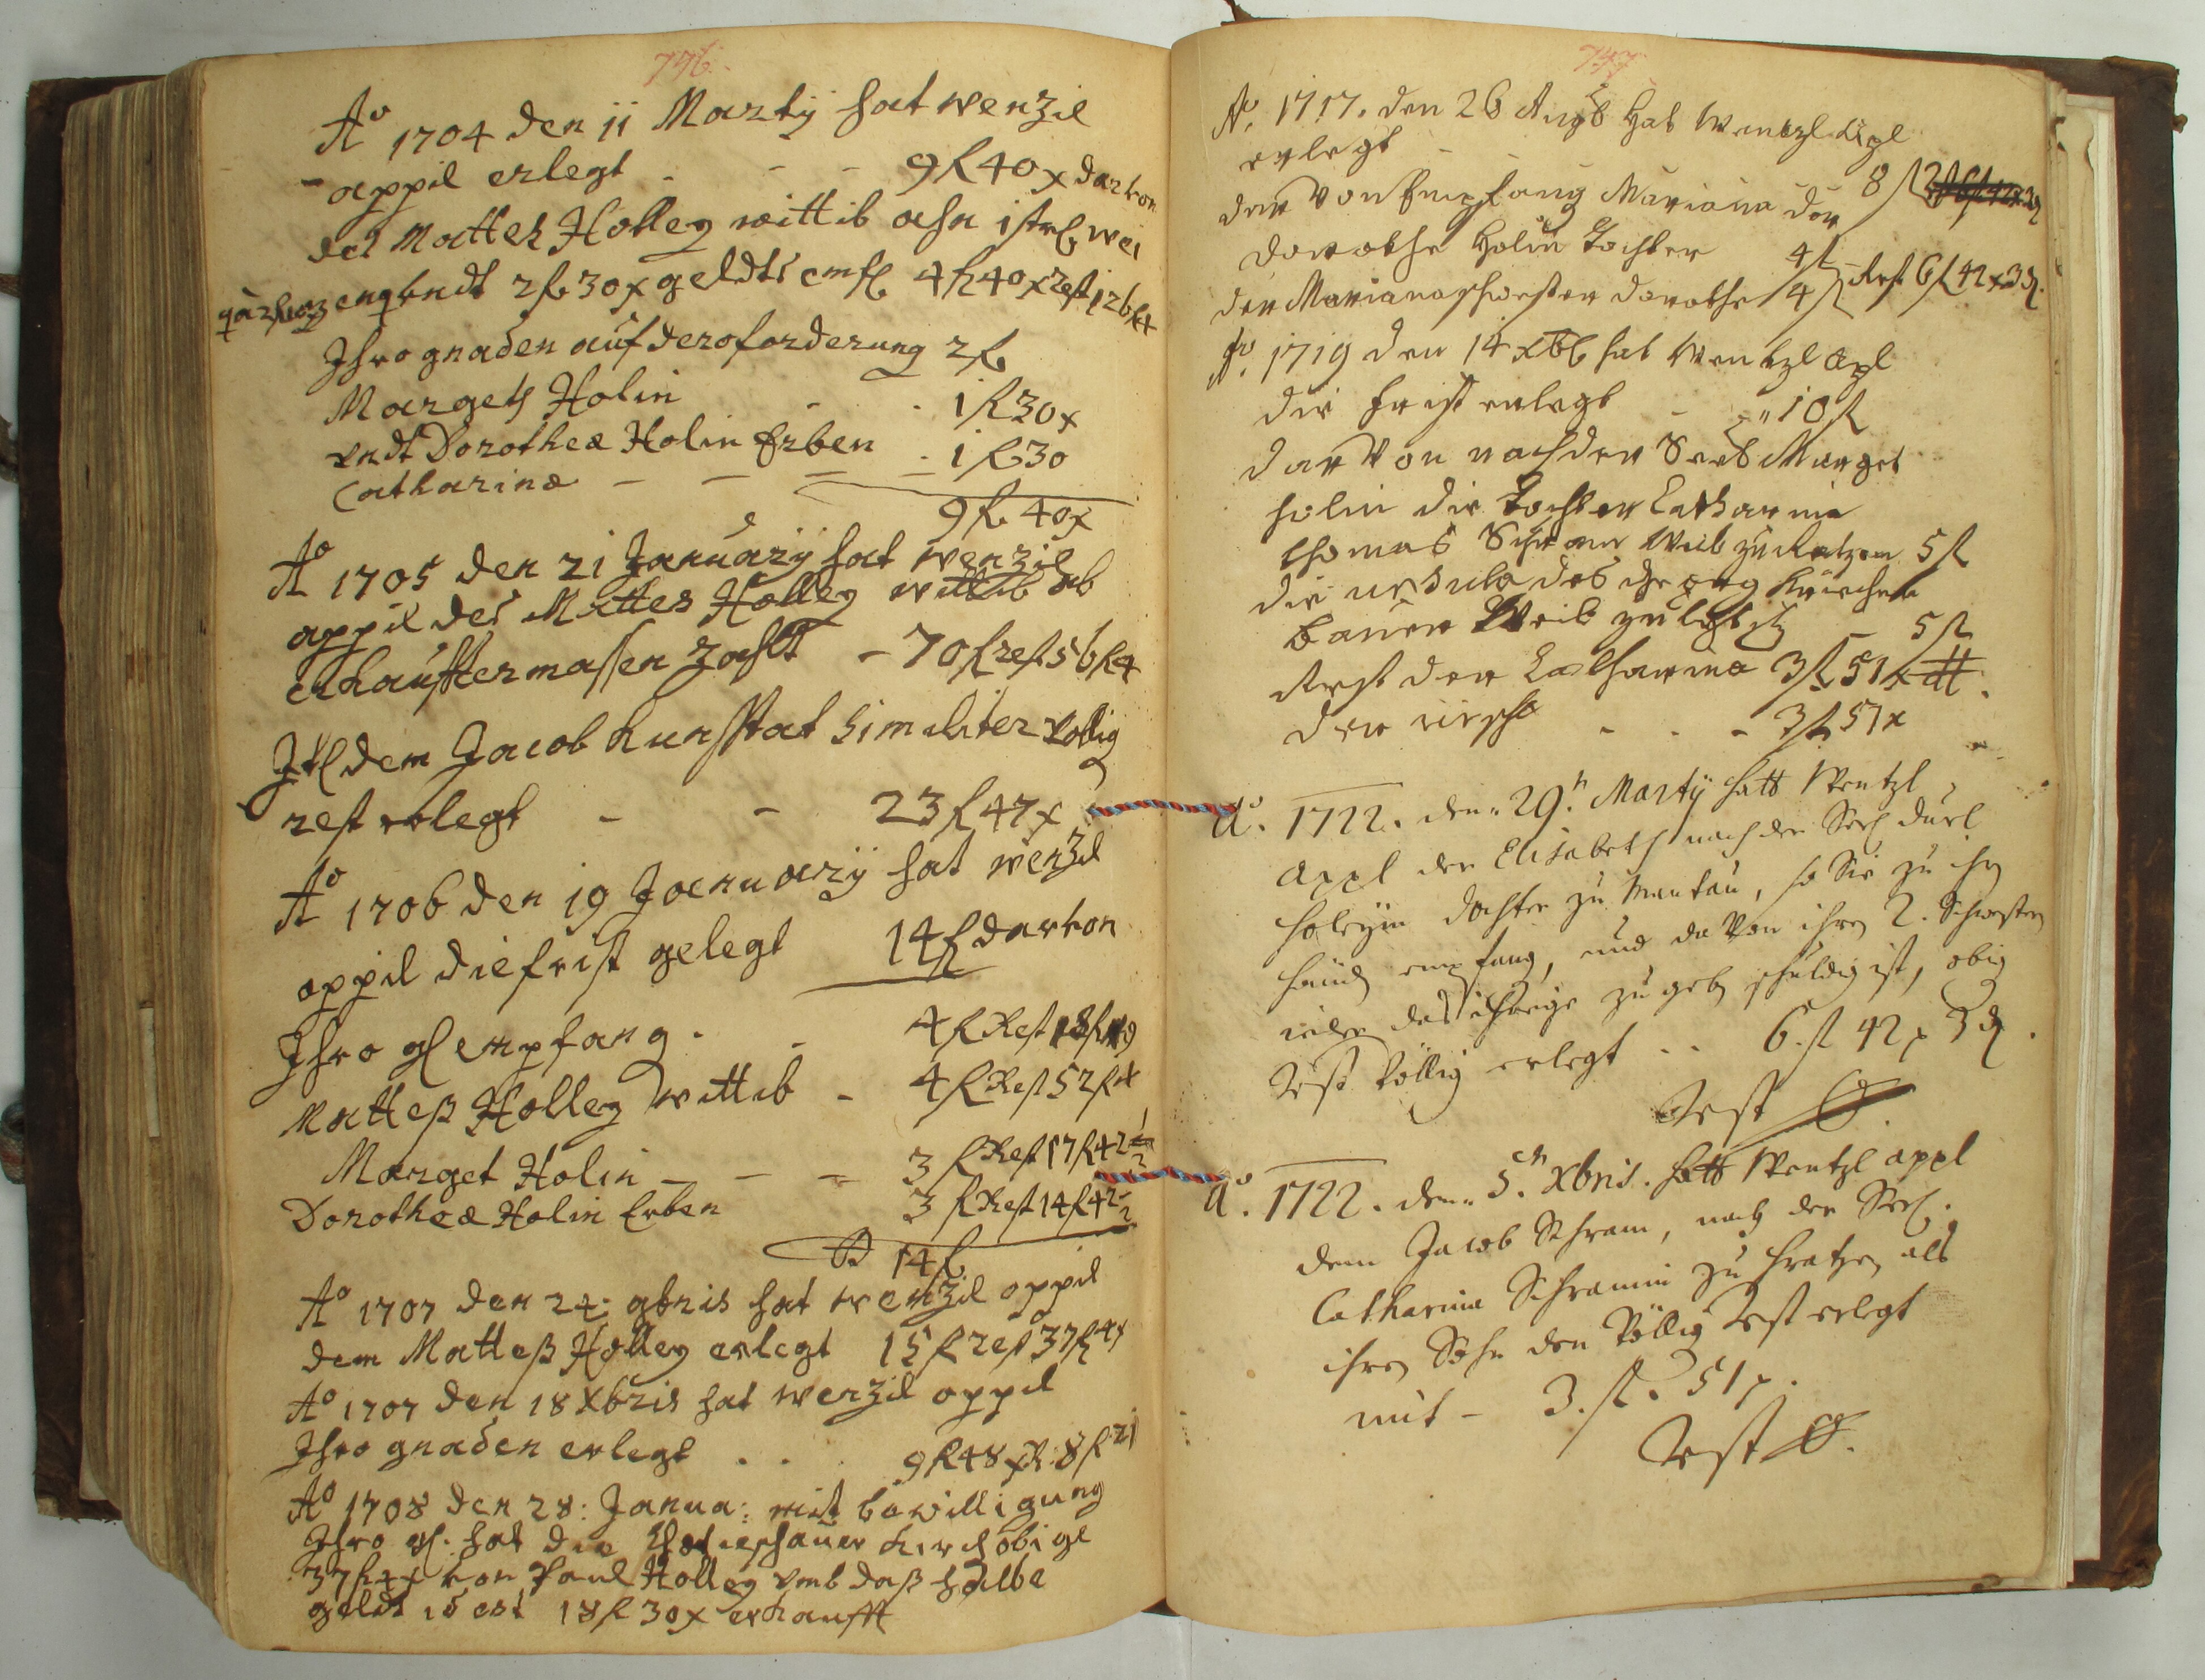 746.
Aº 1704 den 11 Martÿ hat wenzil
appil erlegt - - 9 fl 40 x darvon
des Mattes Holley wittib ahn 1 str
vndt 2 fl 30 x geldts 4 fl 40 x rest 126 fl 4
Ihro gnaden auf dero forderung 2 fl
Margeth Holin - - 1 fl 30 x
vndt Dorothea Holin Erben - 1 fl 30
Catharina - - - -
9 fl 40 x
Aº 1705 den 21 Januarÿ hat wenzil
appil des Mattes Holley wittib ab
erkaufter massen zahlt - 70 fl rest 56 fl 4
dem Jacob Kunsstat Similiter völlig
rest erlegt - - 23 fl 47 x
Aº 1706 den 19 Januarÿ hat wenzil
appil die frist gelegt 14 fl darvon
Ihro gl empfang - 4 fl Rest 18 fl 9
Matteß Holley wittib - 4 fl Rest 52 fl 4
Marget Holin - - - 3 fl Rest 17 fl 42 1/2
Dorothea Holin Erben 3 fl Rest 14 fl 42
14 fl
Aº 1707 den 24: 9bris hat wenzil appil
dem Matteß Holley erlegt 15 fl rest 37 fl 4 x
Aº 1707 den 18 Xbris hat wenzil appil
Ihro gnaden erlegt . . . 9 fl 48 x R: 8 fl 21
Aº 1708 den 28: Janua: mit bewilligung
Ihro gl. hat die kirch obige
37 fl 4 x von Paul Holley vmb daß halbe
geldt id est 18 fl 30 x erkaufft
747
Aº. 1717. den 26 Augs hat Wentzl Apl
erlegt - - 8 fl
dar von Empfang Mariana der
Dorothe Holin Tochter 4 fl Rest 6 fl 42 x 3 d.
der Mariana schwester dorothe 4 fl
Aº. 1719 den 14 xbl hat Wentzl Apl
die frist erlegt - 10 fl
dar von nach der Marget
holin die Tochter Catharina
thomas Schram Weib zu Ratzen 5 fl
die ursula des georg
bauer Weib zu 5 fl
Rest der Catharina 3 fl 51 x
der - - - 3 fl 51 x
Aº. 1722. den 29.n Martÿ hatt Wentzl
Appl der Elisabeth nach der
holeyin dochter zu Mantau, so Sie zu ihr
händ empfang, und da von ihren 2. Schwester
das ihrige zu geb schuldig ist, obig
Rest völlig erlegt . . 6. fl 42 x 3 d.
Rest
Aº. 1722. den 5.ten Xbris. hatt Wentzl appl
dem Jacob Schram, nach der
Catharina Schramin zu hratzen als
ihren Sohn den völlig Rest erlegt
mit - 3. fl. 51 x.
Rest